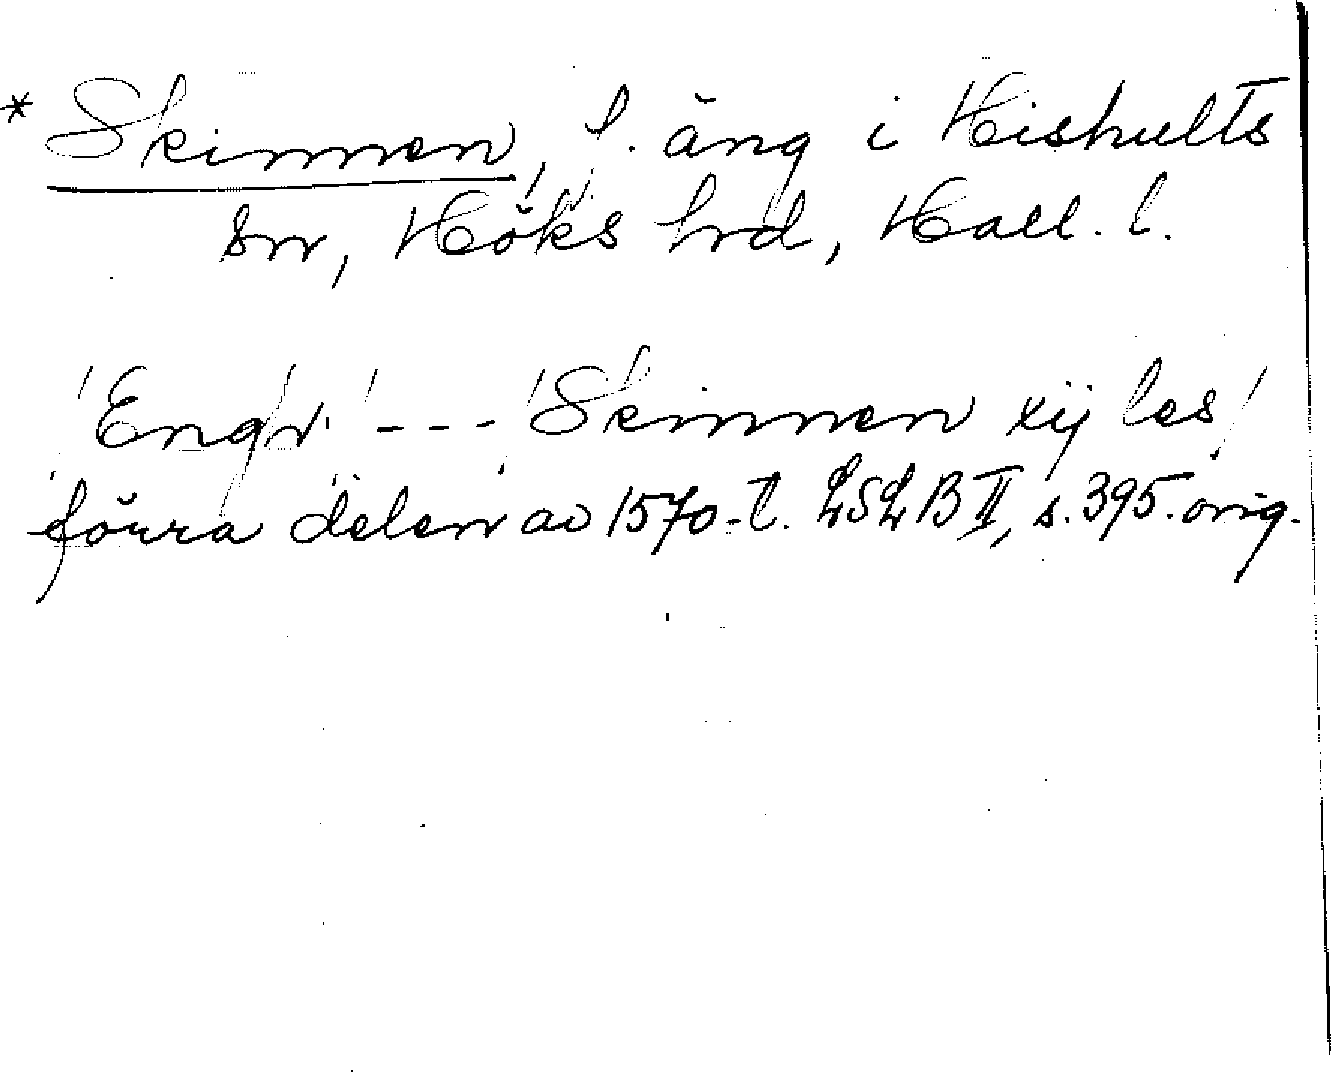 * Skinnen, f. äng i Hishults
sn, Höks hrd, Hall. l.
'Engr' --- 'Skinnen xij les'
förra delen av 1570-t. LSLB II, s. 395. orig.